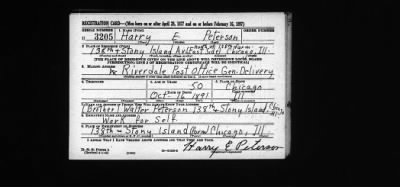 REGISTRATION CARD—(Men born on or after April 28, 1877 and on or before February 16, 1897)
SERIAL NUMBER 1. NAME (Print) ORDER NUMBER
3205 Harry E Peterson
2. PLACE OF RESIDENCE (Print)
138th + Stony Island Ave Chicago, Ill.
(THE PLACE OF RESIDENCE GIVEN ON THE LINE ABOVE WILL DETERMINE LOCAL BOARD
JURISDICTION; LINE 2 OF REGISTRATION CERTIFICATE WILL BE IDENTICAL)
3. MAILING ADDRESS
Riverdale Post Office Gen. Delivery
4. TELEPHONE 5. AGE IN YEARS 6. PLACE OF BIRTH
50 Chicago
Oct- 16 1891 Ill
7. NAME AND ADDRESS OF PERSON WHO WILL ALWAYS KNOW YOUR ADDRESS
(Brother) Walter Peterson 138th + Stony Island
8. EMPLOYER'S NAME AND ADDRESS
Work For Self
9. PLACE OF EMPLOYMENT OR BUSINESS
138th - Stony Island Chicago, Ill
I AFFIRM THAT I HAVE VERIFIED ABOVE ANSWERS AND THAT THEY ARE TRUE.
Harry E Peterson